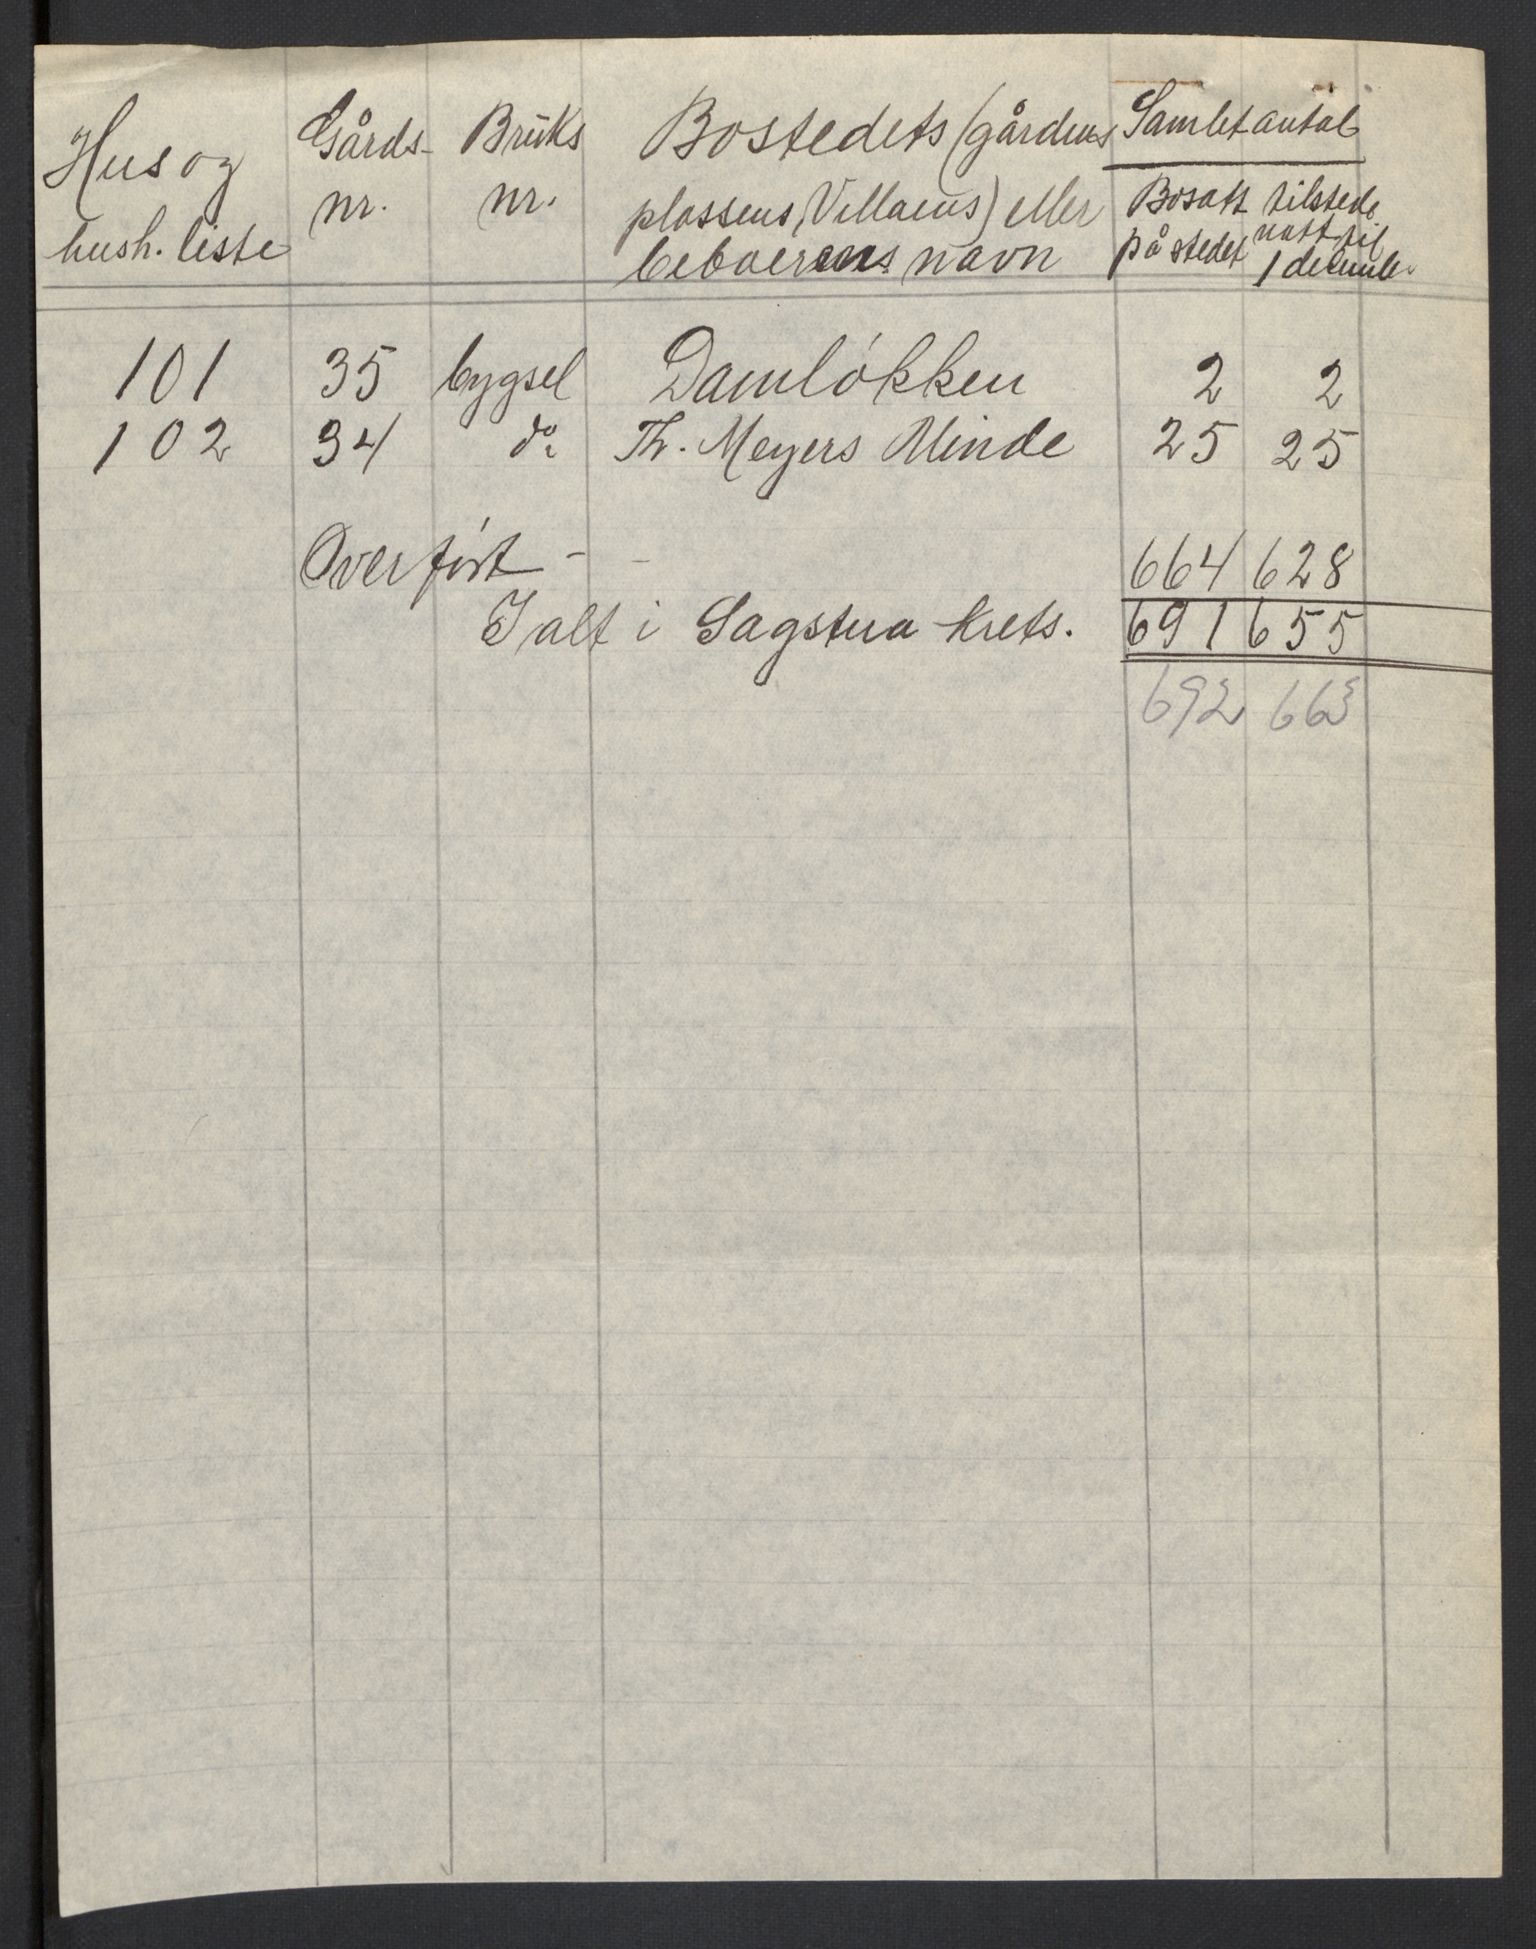 Hus og
hush. liste
Gårds-
nr.
Bruks
nr.
Bostedets (gårdens
plassens, Villaens) eller
beboerens navn
Samlet antal
Bosatt
på stedet
tilstede
natt til
1 decemb.
101 35 bygsel Damløkken 2 2
102 34 do Th. Meyers Minde 25 25
Overført - - 664 628
I alt i Sagstua krets. 691 655
692 663